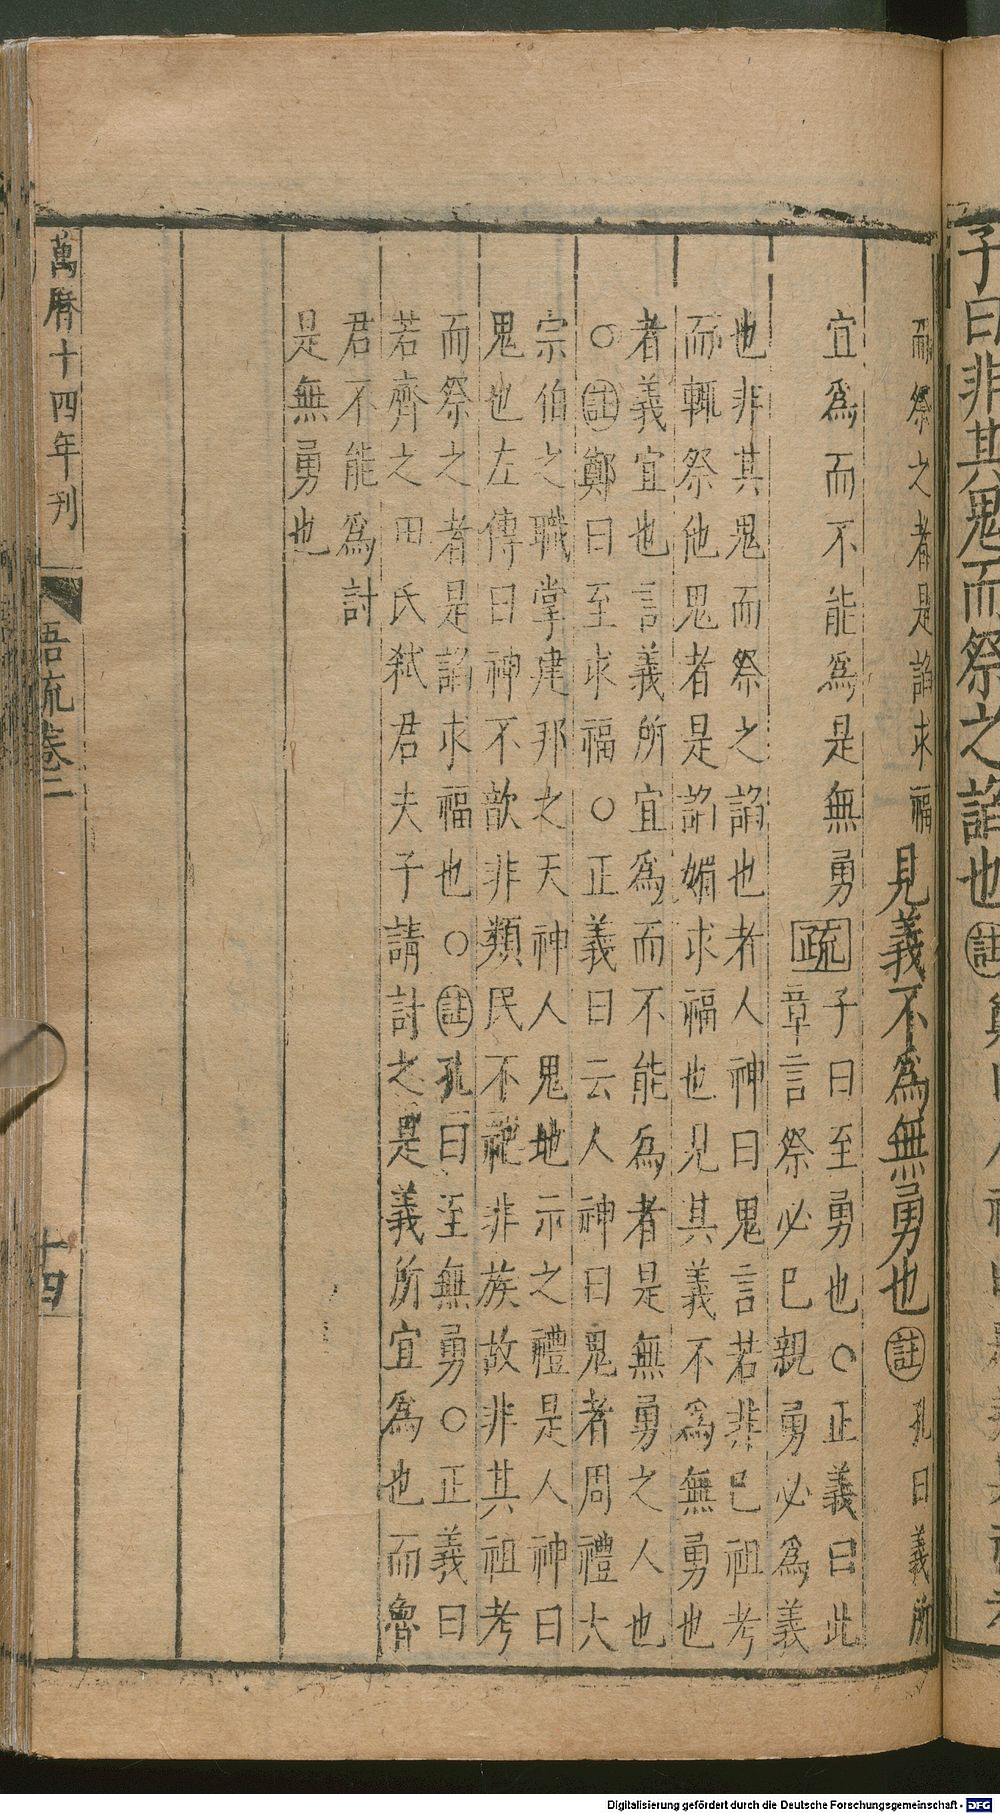 子曰非其鬼而祭之諂也註鄭曰人神曰鬼非其祖考
而祭之者是諂求福見義不爲無勇也註孔曰義所
宜爲而不能爲是無勇疏子曰至勇也○正義曰此
章言祭必巳親勇必爲義
也非其鬼而祭之諂也者人神曰鬼言若非巳祖考
而輒祭他鬼者是諂媚求福也見其義不爲無勇也
者義宜也言義所宜爲而不能爲者是無勇之人也
○註鄭曰至求福○正義曰云人神曰鬼者周禮大
宗伯之職掌建邦之天神人鬼地示之禮是人神曰
鬼也左傳曰神不歆非類民不祀非族故非其祖考
而祭之者是諂求福也○註孔曰至無勇○正義曰
若齊之田氏弒君夫子請討之是義所宜爲也而魯
君不能爲討
是無勇也
萬曆十四年刊
語疏卷二
十四
Digitalisierung gefördert durch die Deutsche Forschungsgemeinschaft - DFG